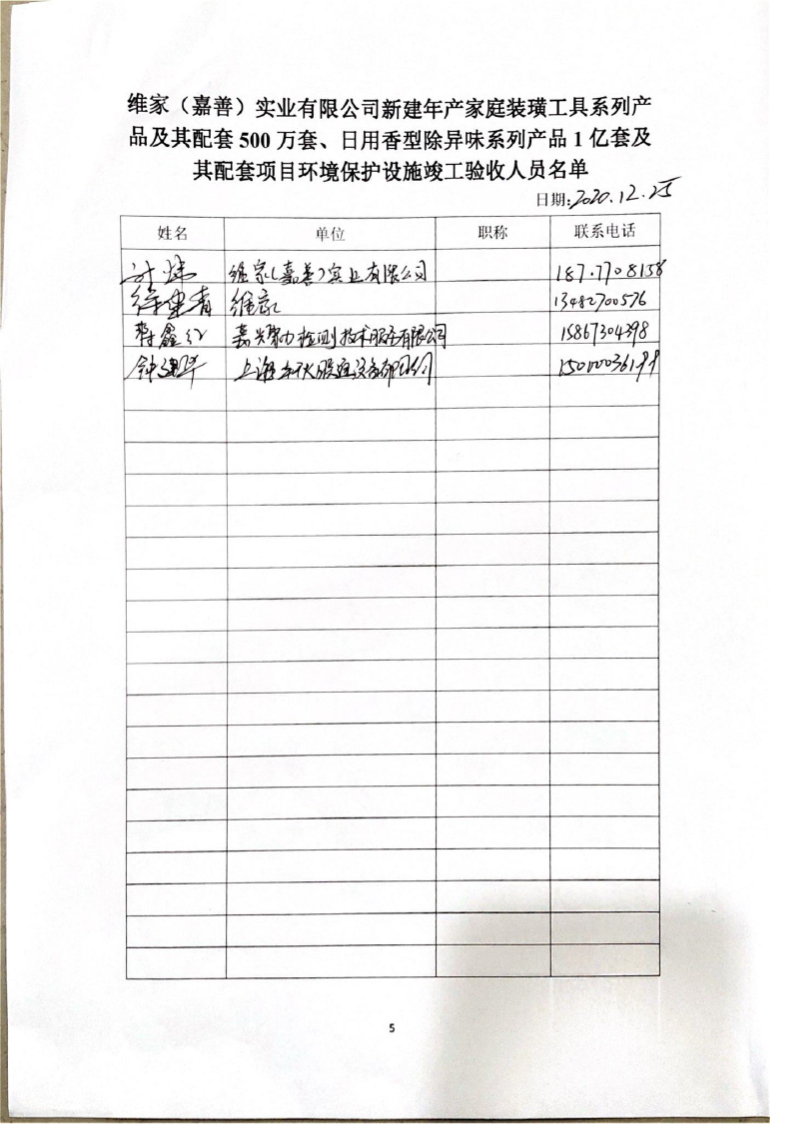 维家（嘉善）实业有限公司新建年产家庭装璜工具系列产
品及其配套 500 万套、日用香型除异味系列产品 1 亿套及
其配套项目环境保护设施竣工验收人员名单
日期:2020.12.25
姓名 单位 职称 联系电话
叶炜 维家(嘉善)实业有限公司 18717708158
徐建青 维家 13482700576
鑫 嘉兴聚力检测技术服务有限公司 15867304398
钟建华 上海 设备有限公司
5